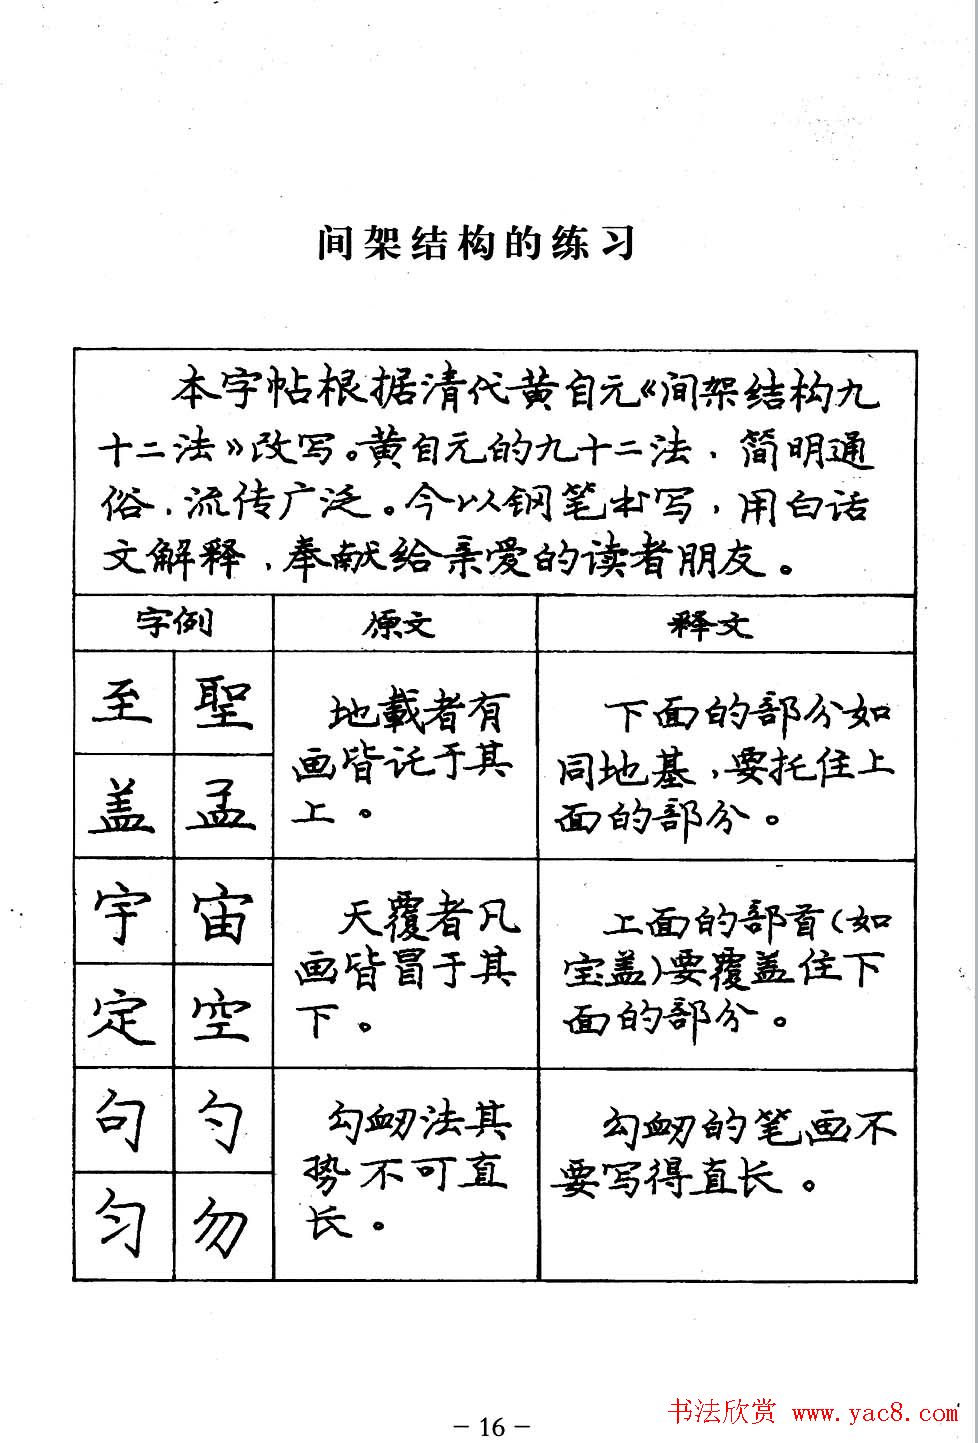 间架结构的练习
本字帖根据清代黄自元《间架结构九
十二法》改写。黄自元的九十二法，简明通
俗，流传广泛。今以钢笔书写，用白话
文解释，奉献给亲爱的读者朋友。
字例 原文 释文
至 聖
盖 孟
地載者有
画皆託于其
上。
下面的部分如
同地基，要托住上
面的部分。
宇 宙
定 空
天覆者凡
画皆冒于其
下。
上面的部首(如
宝盖)要覆盖住下
面的部分。
句 勺
匀 勿
勾衂法其
势不可直
长。
勾衂的笔画不
要写得直长。
- 16 -
书法欣赏 www.yac8.com